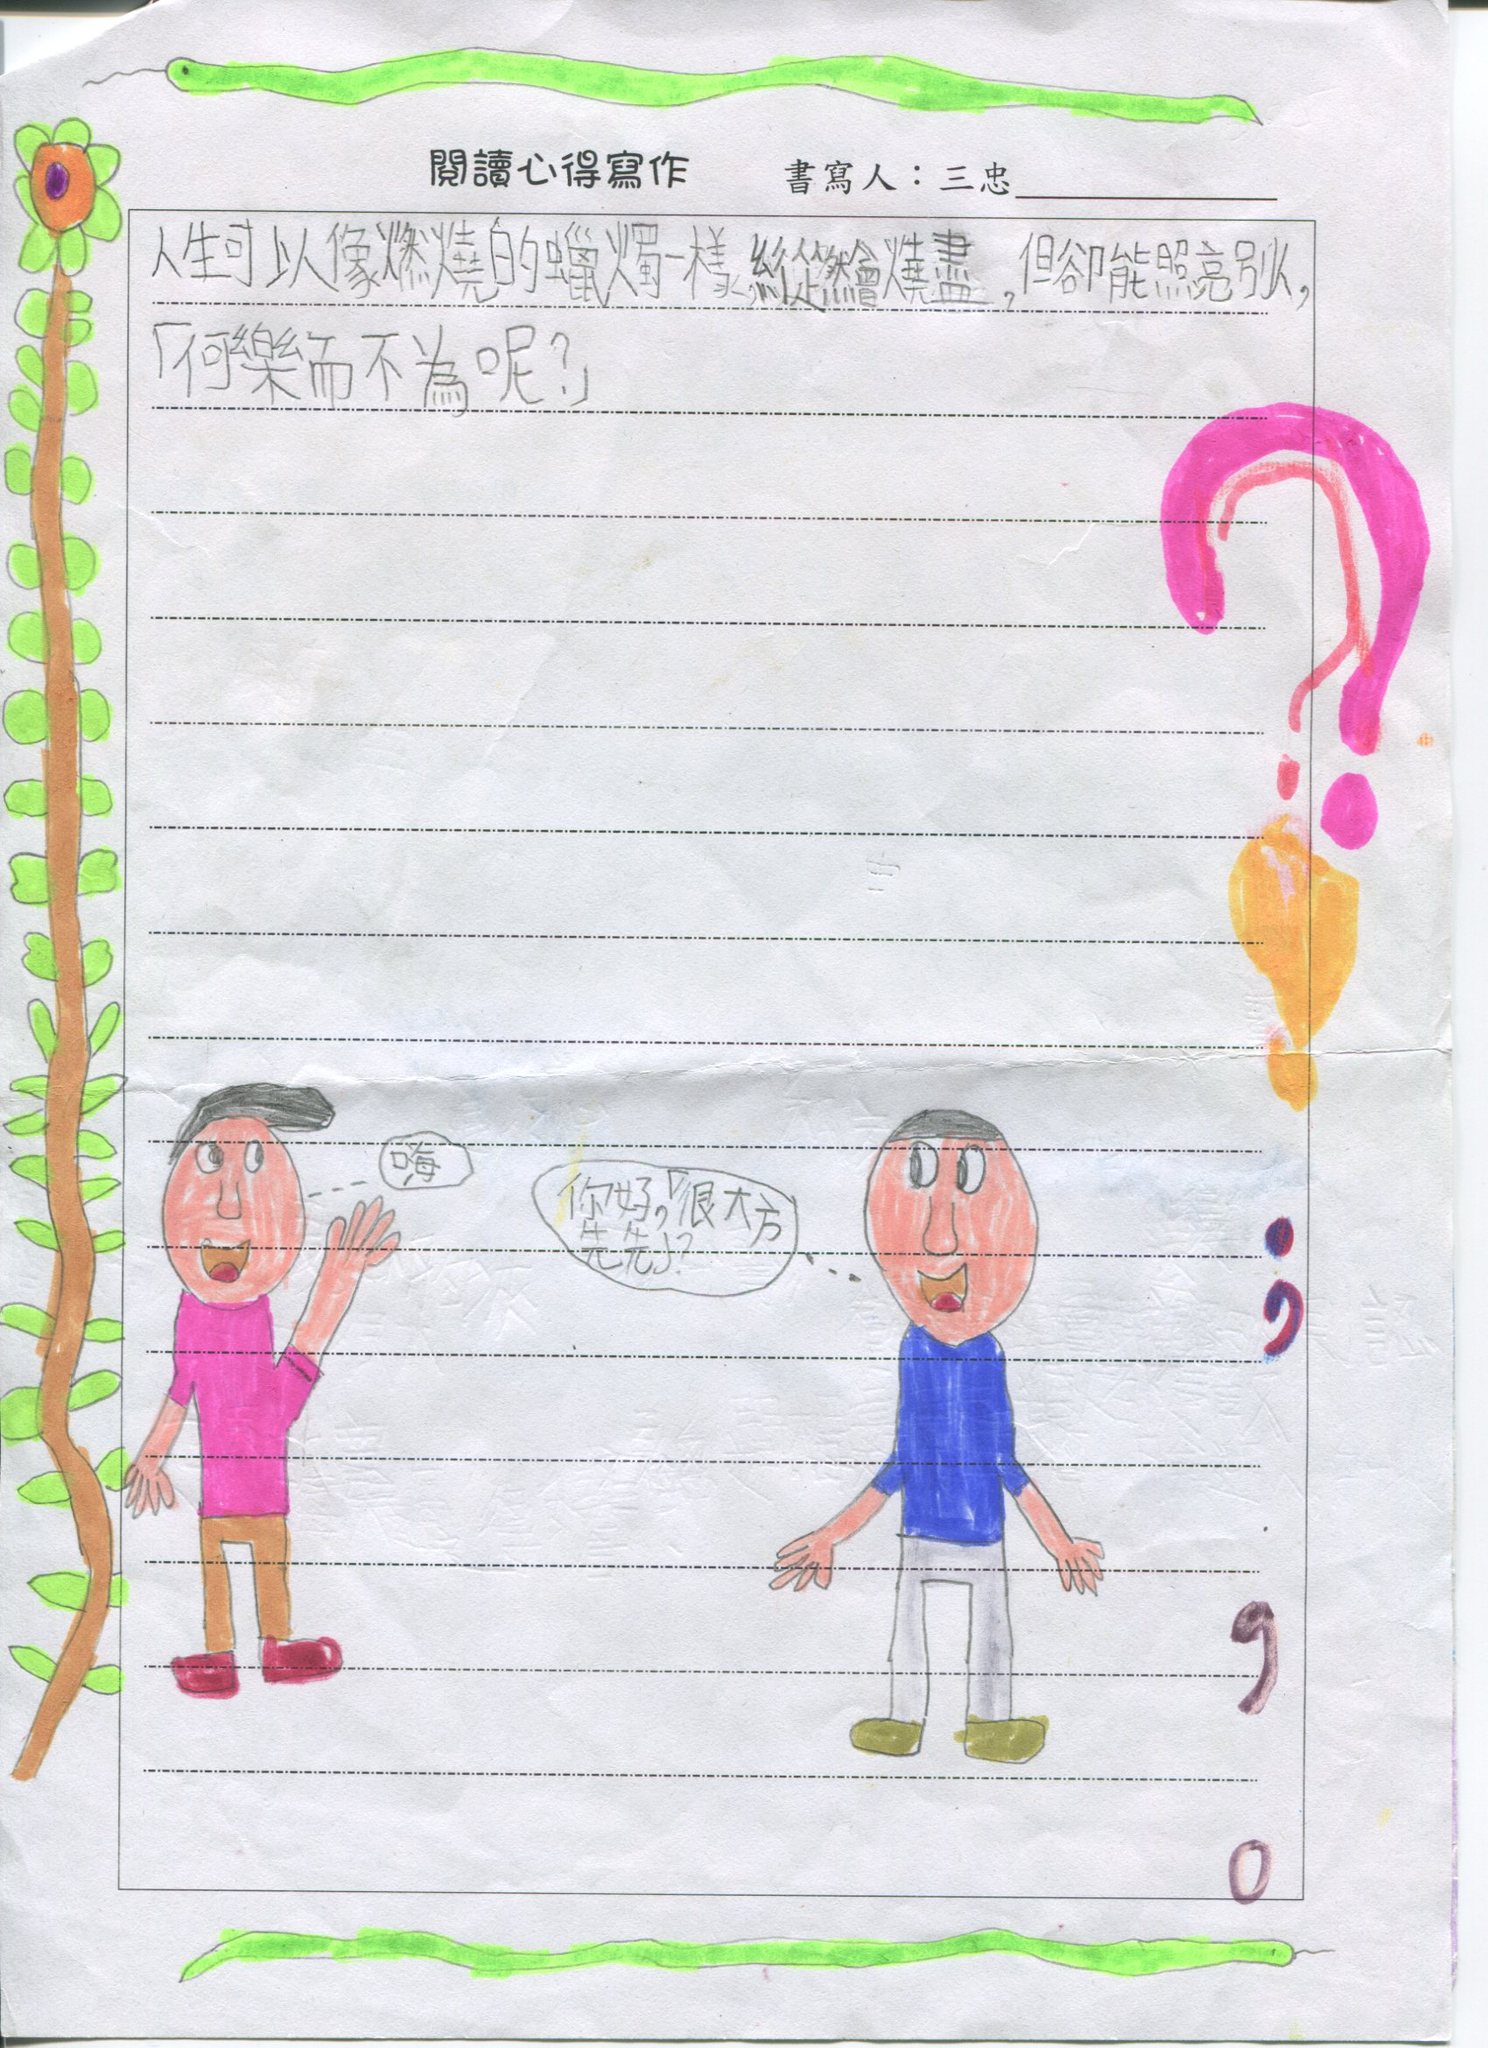 閱讀心得寫作 書寫人：三忠
人生可以像燃燒的蠟燭一樣,縱然會燒盡,但卻能照亮別人,
「何樂而不為呢?」
嗨
你好,「很大方
先先」?
？
！
；
，
。